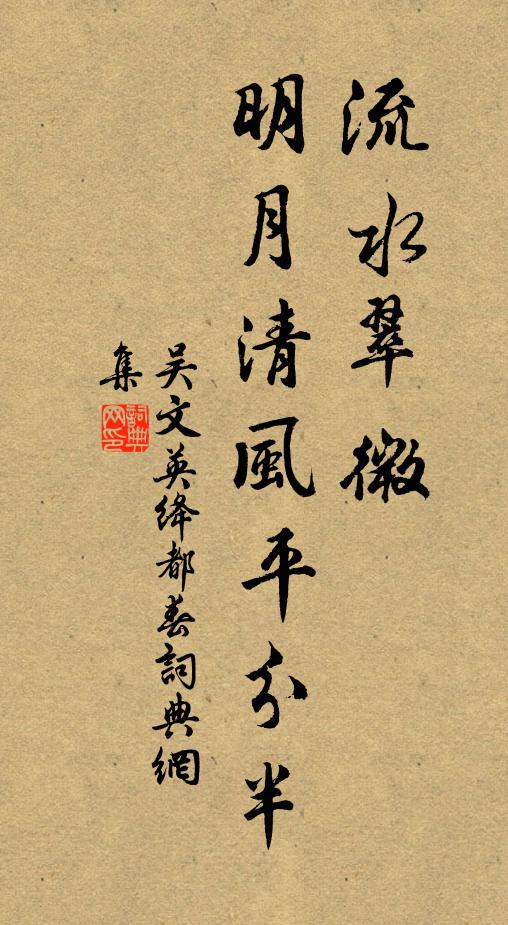 流水翠微
明月清風平分半
吴文英绛都春詞典網
集
詞典
网印